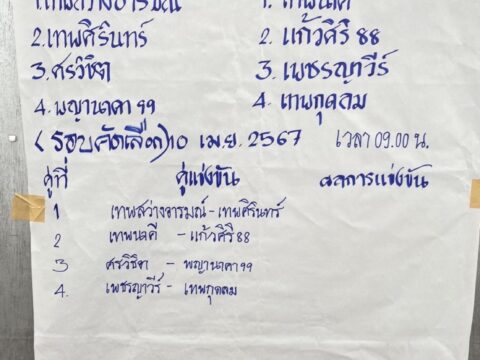 1.เทพสว่างอารมณ์ 1. เทพนาคี
2.เทพศิรินทร์ 2. แก้วศิริ 88
3.ศรวิชิต 3. เพชรญาวีร์
4.พญานาคา 99 4. เทพกุดลม
(รอบคัดเลือก) 10 เม.ย. 2567 เวลา 09.00 น.
คู่ที่ คู่แข่งขัน ผลการแข่งขัน
1 เทพสว่างอารมณ์ - เทพศิรินทร์
2 เทพนาคี - แก้วศิริ 88
3 ศรวิชิต - พญานาคา 99
4. เพชรญาวีร์ - เทพกุดลม